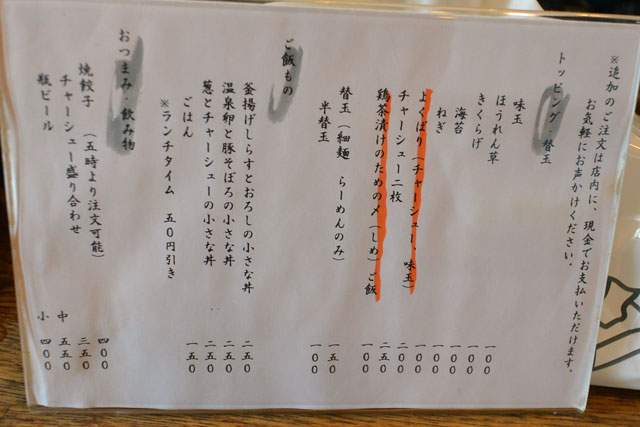 ※追加のご注文は店内に、現金でお支払いただけます。
お気軽にお声かけください。
トッピング・替玉
味玉 一〇〇
ほうれん草 一〇〇
きくらげ 一〇〇
海苔 一〇〇
ねぎ 一〇〇
よくばり(チャーシュー、味玉) 二〇〇
チャーシュー二枚 二五〇
鶏茶漬けのための〆(しめ)ご飯 一〇〇
替玉(細麺 らーめんのみ) 一五〇
半替玉 一〇〇
ご飯もの
釜揚げしらすとおろしの小さな丼 二五〇
温泉卵と豚そぼろの小さな丼 二五〇
葱とチャーシューの小さな丼 二五〇
ごはん 一五〇
※ランチタイム 五〇円引き
おつまみ・飲み物
焼餃子 (五時より注文可能) 四〇〇
チャーシュー盛り合わせ 三五〇
瓶ビール 中 五五〇
小 四〇〇